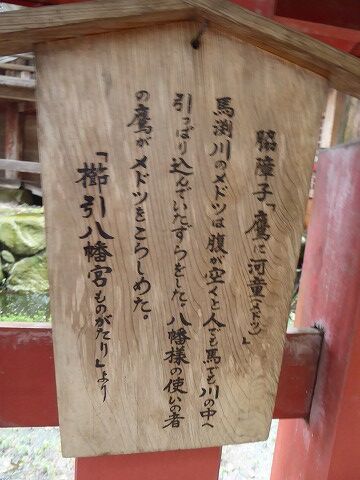 脇障子「鷹に河童(メドツ)」
馬渕川のメドツは腹が空くと人でも馬でも川の中へ
引っぱり込んでいたずらをした。八幡様の使いの者
の鷹がメドツをこらしめた。
「櫛引八幡宮ものがたり」より